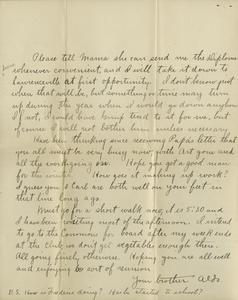 Please tell Mama she can send me the Diploma
whenever convenient, and I will take it down to
Lawrenceville at first opportunity. I don't know just
when that will be, but something or time may turn
up during the year when I would go down anyhow
If not, I could have hemp tend to it for me, but
of course I will not bother him unless necessary.
Have been thinking since receiving Papa's letter that
you all must be very busy now, with Art gone and
all the work going on. Hope you got a good man
for the work. How goes it making up work?
I guess you & Carl are both well on your feet in
that line long ago.
Must go for a short walk now, it is 5:30 and
I have been writing most of the afternoon. I intend
to go to the Commons for board after my week ends
at the club, we don't get vegetables enough there.
All going finely, otherwise. Hoping you are all well
and enjoying best sort of
Your brother
P.S. How is Frederic doing? Has he started to school?